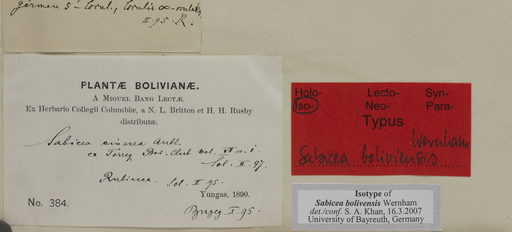 germen 5-local., loculis ∞-ovulatis
II. 95. R.
PLANTÆ BOLIVIANÆ.
A MIGUEL BANG LECTÆ.
Ex Herbario Collegii Columbiæ, a N. L. Britton et H. H. Rusby
distributæ.
Sabicea cinerea Aubl.
ex Torrey Bot. Club vol. VI n. 1.
Sol. II. 97.
Rubiacea. Sol. II. 95.
Yungas, 1890.
No. 384.
I. 95.
Holo- Lecto- Syn-
Iso- Neo- Para-
Typus
Wernham
Sabicea boliviensis
Isotype of
Sabicea bolivensis Wernham
det./conf. S. A. Khan, 16.3.2007
University of Bayreuth, Germany